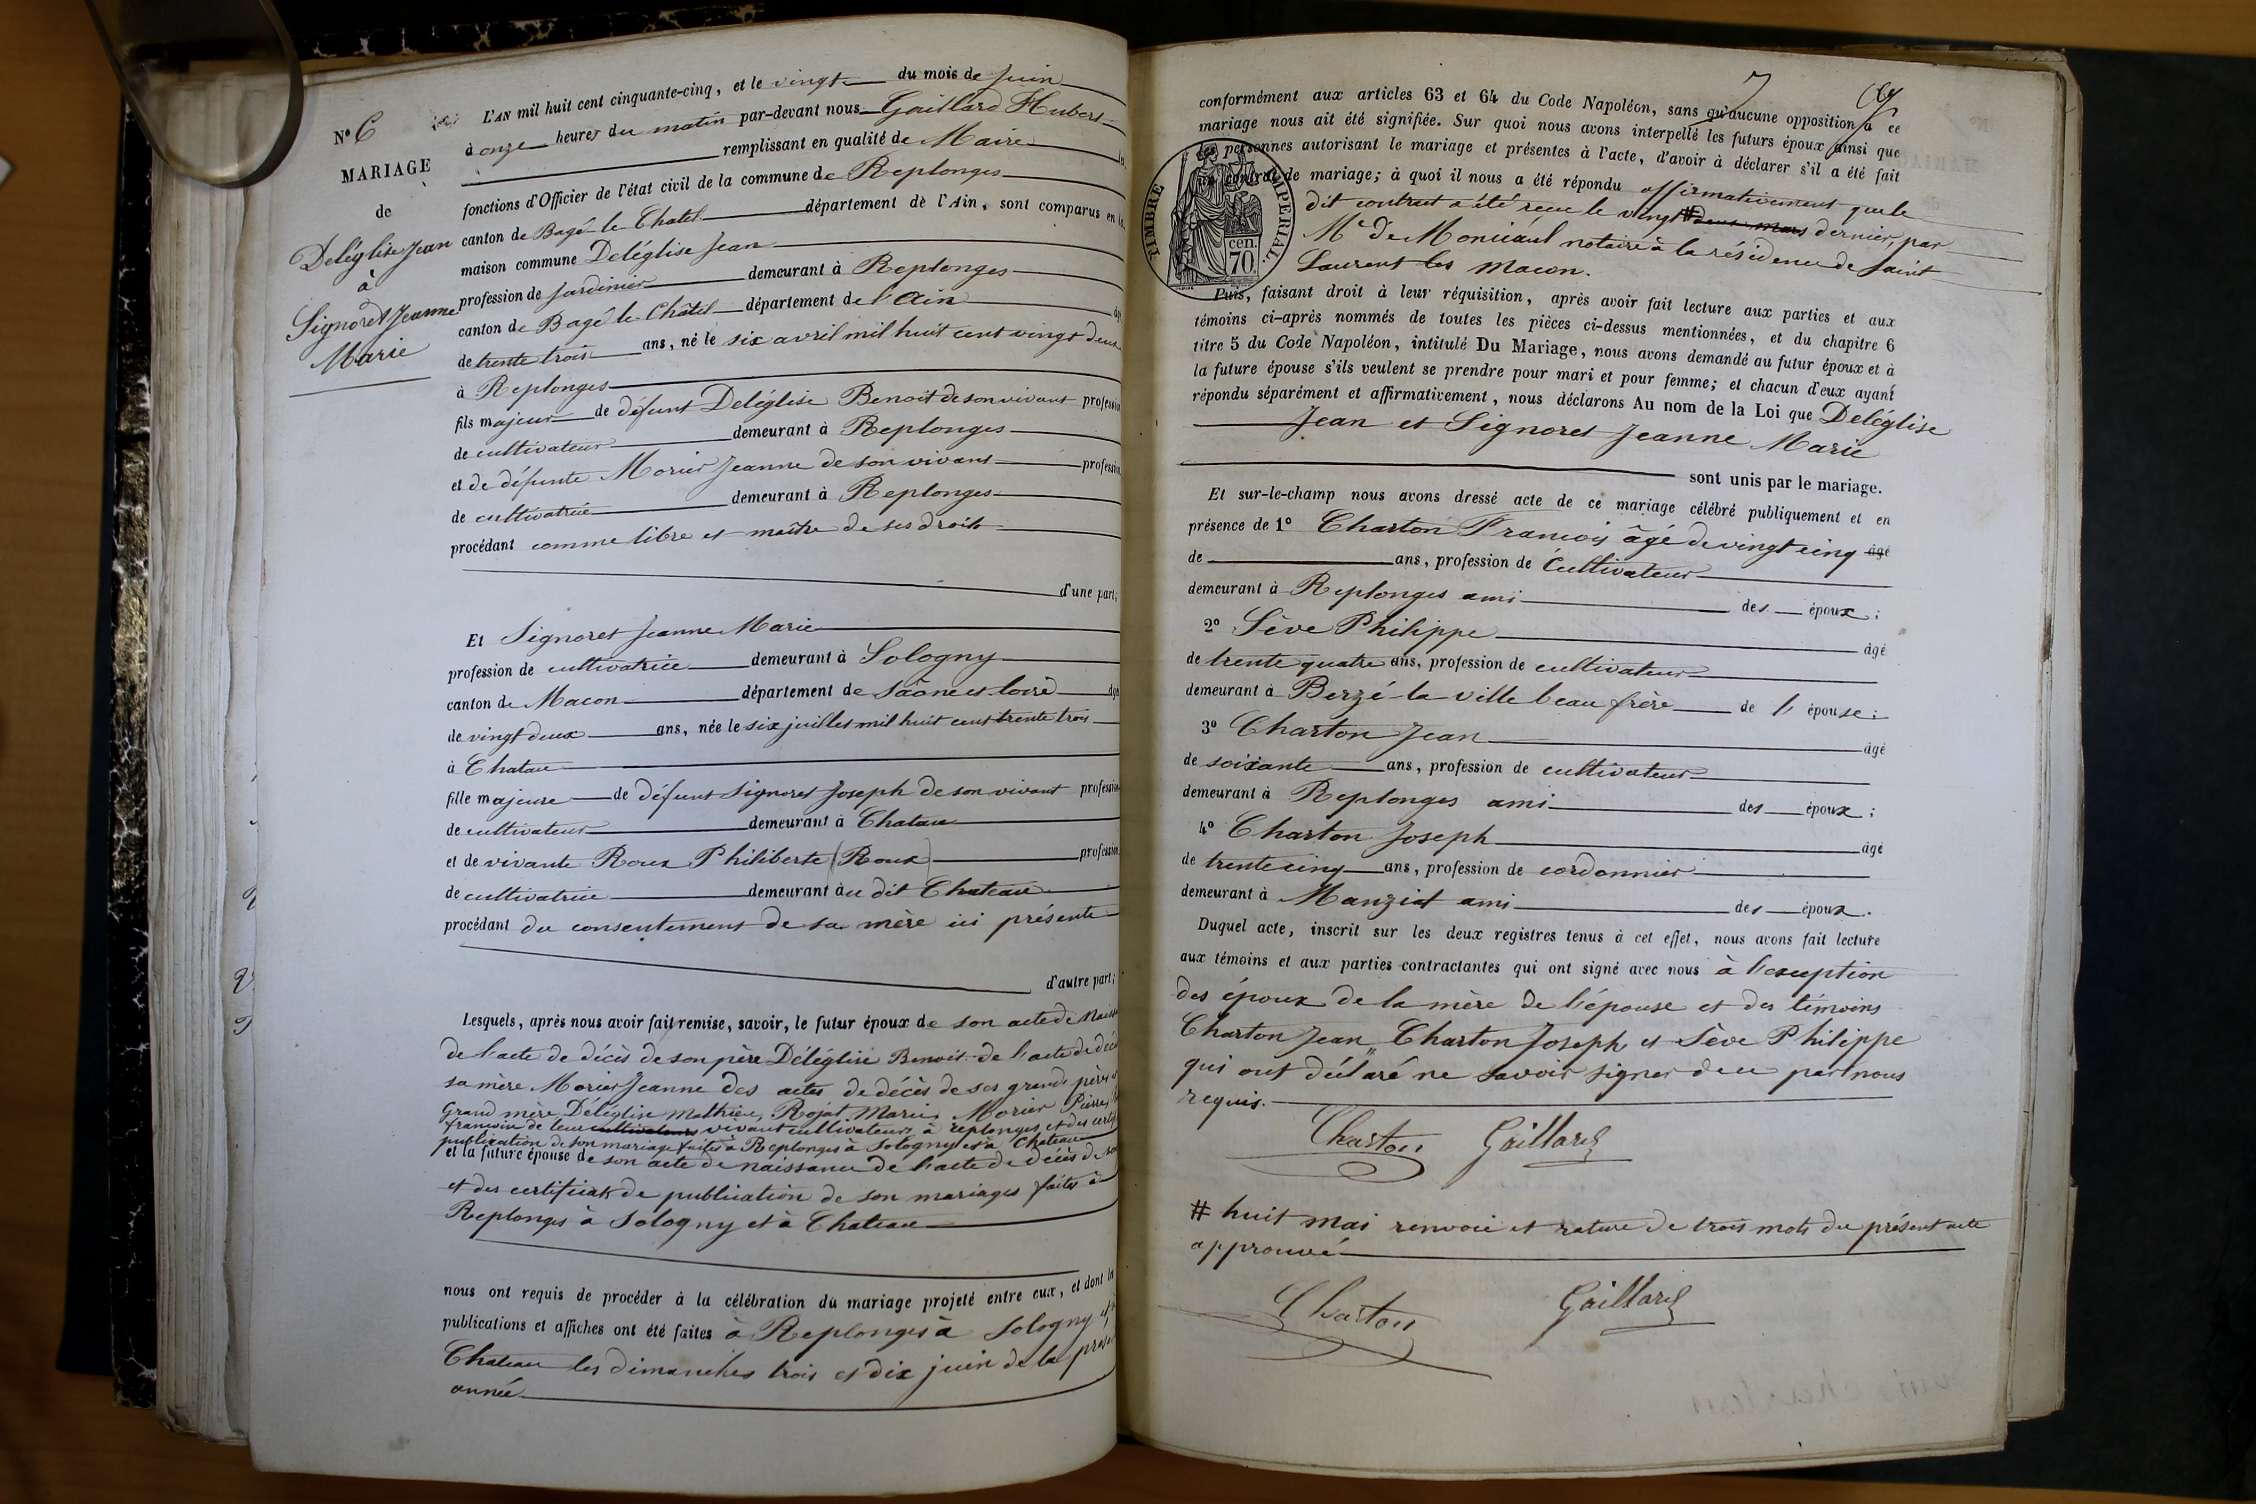 N° 6
MARIAGE
de
Deléglise Jean
à
Signoret Jeanne
Marie
L'AN mil huit cent cinquante-cinq, et le vingt du mois de Juin
à onze heures du matin par-devant nous Gaillard Hubert
remplissant en qualité de Maire
fonctions d'Officier de l'état civil de la commune de Replonges
canton de Bagé le Chatel département de l'Ain, sont comparus en la
maison commune Deléglise Jean
profession de Jardinier demeurant à Replonges
canton de Bagé le Châtel département de l'Ain
de trente trois ans, né le six avril mil huit cent vingt deux
à Replonges
fils majeur de défunt Deléglise Benoit de son vivant profession
de cultivateur demeurant à Replonges
et de défunte Morier Jeanne de son vivant profession
de cultivatrice demeurant à Replonges
procédant comme libre et maître de ses droits
d'une part;
Et Signoret Jeanne Marie
profession de cultivatrice demeurant à Sologny
canton de Macon département de Sâone et Loire âgé
de vingt deux ans, née le six juillet mil huit cent trente trois
à Chatau
fille majeure de défunt Signoret Joseph de son vivant profession
de cultivateur demeurant à Chatau
et de vivante Roux Philiberte (Roux) profession
de cultivatrice demeurant au dit Chateau
procédant du consentement de sa mère ici présente
d'autre part;
Lesquels, après nous avoir fait remise, savoir, le futur époux de son acte de Naiss
de l'acte de décès de son père Déléglise Benoit de l'acte de décè
sa mère Morier Jeanne des actes de décès de ses grands pères et
Grand mère Déléglise Mathieu, Rojat Marie, Morier Pierre
francoise de leur cultivateurs vivant cultivateurs à replonges et des certif
publication de son mariage faites à Replonges à Sologny et à Chateau
et la future épouse de son acte de naissance de l'acte de décès de son
et des certificats de publication de son mariages faites à
Replonges à Sologny et à Chateau
nous ont requis de procéder à la célébration du mariage projeté entre eux, et dont les
publications et affiches ont été faites à Replonges à Sologny et
Chateau les dimanches trois et dix juin de la prés
année
7
conformément aux articles 63 et 64 du Code Napoléon, sans qu'aucune opposition à ce
mariage nous ait été signifiée. Sur quoi nous avons interpellé les futurs époux ainsi que
les personnes autorisant le mariage et présentes à l'acte, d'avoir à déclarer s'il a été fait
un contrat de mariage; à quoi il nous a été répondu affirmativement que le
dit contrat a été recu le vingt # deux mars dernier, par
Me de Moniéaul notaire à la résidence de Saint
Laurent les Macon.
TIMBRE IMPERIAL
70 cen.
Puis, faisant droit à leur réquisition, après avoir fait lecture aux parties et aux
témoins ci-après nommés de toutes les pièces ci-dessus mentionnées, et du chapitre 6
titre 5 du Code Napoléon, intitulé Du Mariage, nous avons demandé au futur époux et à
la future épouse s'ils veulent se prendre pour mari et pour femme; et chacun d'eux ayant
répondu séparément et affirmativement, nous déclarons Au nom de la Loi que Deléglise
Jean et Signoret Jeanne Marie
sont unis par le mariage.
Et sur-le-champ nous avons dressé acte de ce mariage célébré publiquement et en
présence de 1° Charton Francois âgé de vingt cinq âgé
de ans, profession de Cultivateur
demeurant à Replonges ami des époux;
2° Sève Philippe âgé
de trente quatre ans, profession de cultivateur
demeurant à Berzé la ville beau frère de l'épouse;
3° Charton Jean âgé
de soixante ans, profession de cultivateur
demeurant à Replonges ami des époux;
4° Charton Joseph âgé
de trente cinq ans, profession de cordonnier
demeurant à Manziat ami des époux.
Duquel acte, inscrit sur les deux registres tenus à cet effet, nous avons fait lecture
aux témoins et aux parties contractantes qui ont signé avec nous à l'exception
des époux de la mère de l'épouse et des témoins
Charton Jean Charton Joseph et Sève Philippe
qui ont déclaré ne savoir signer de ce par nous
requis.
Charton Gaillard
# huit mai renvoie et rature de trois mots du présent acte
approuvé
Charton Gaillard